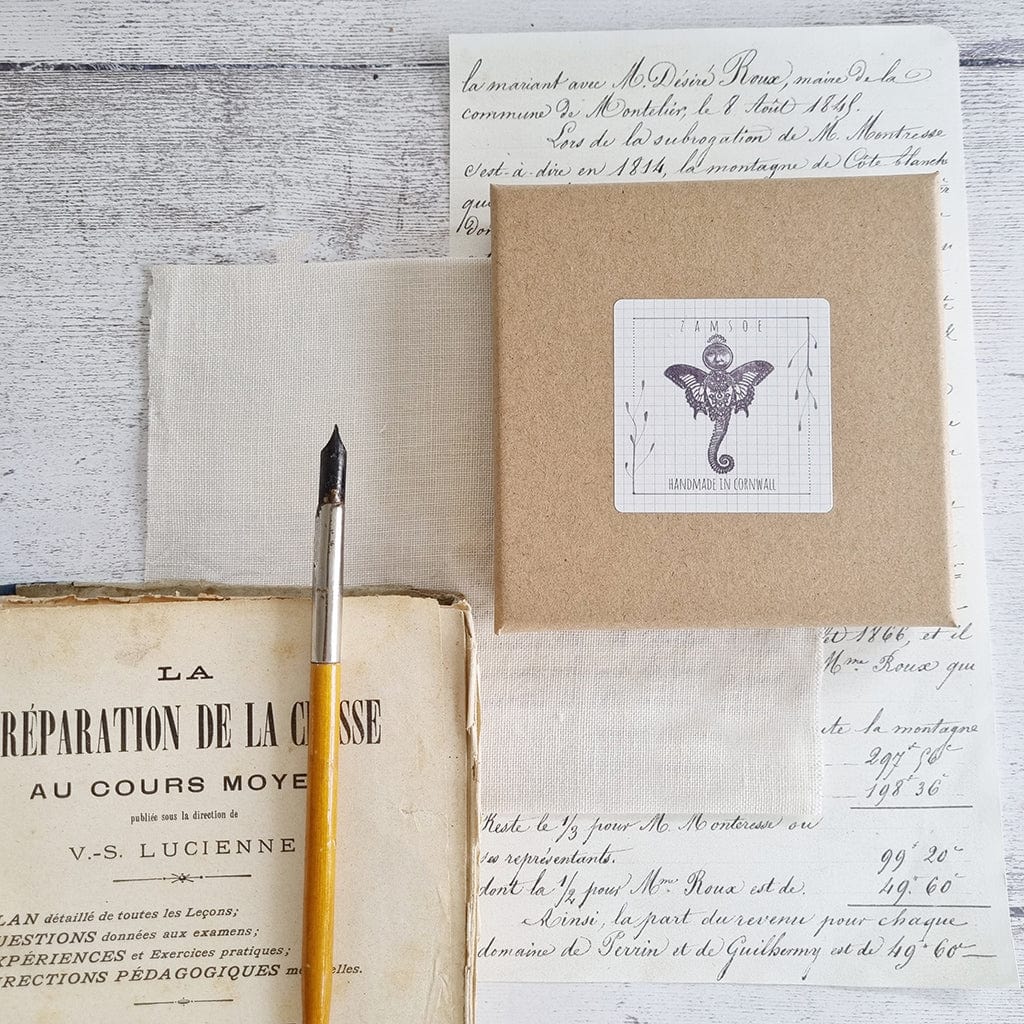 la mariant avec M. Désiré Roux, maire de la
commune de Montelier, le 8 Août 1845.
Lors de la subrogation de M. Montresse
c'est-à-dire en 1814, la montagne de Côte blanche
ZAMSOE
HANDMADE IN CORNWALL
1866, et il
Mme Roux qui
la montagne
297f 56c
198f 36c
Reste le 1/3 pour M. Monteresse ou
ses représentants.
99f 20c
dont la 1/2 pour Mme Roux est de.
49f 60c
Ainsi, la part du revenu pour chaque
domaine de Perrin et de Guilhermy est de 49f 60c
LA
RÉPARATION DE LA C SSE
AU COURS MOYE
publiée sous la direction de
V.-S. LUCIENNE
LAN détaillé de toutes les Leçons;
UESTIONS données aux examens;
XPÉRIENCES et Exercices pratiques;
IRECTIONS PÉDAGOGIQUES me elles.